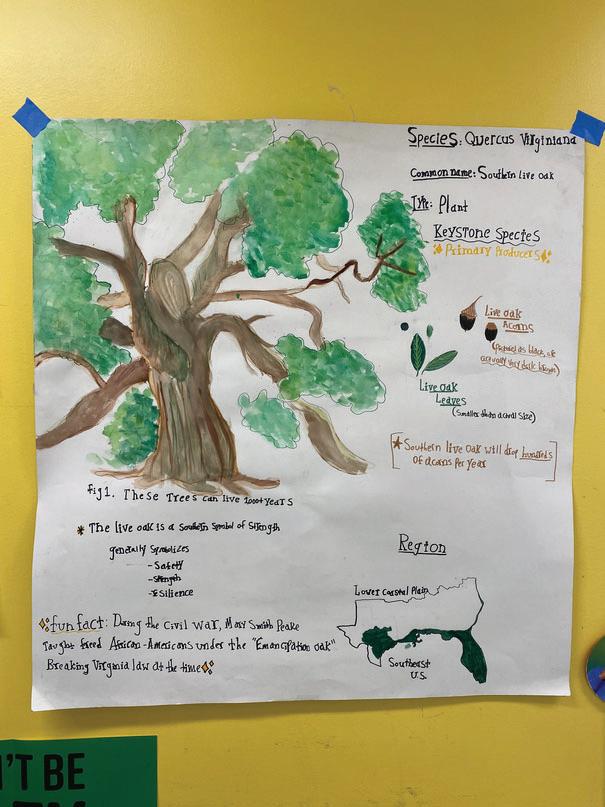 Species: Quercus Virginiana
Common name: Southern live oak
Type: Plant
Keystone Species
Primary Producers
Live oak
Acorns
actually very dark brown)
Live oak
Leaves
(Smaller than actual size)
* Southern live oak will drop hundreds
of acorns per year
fig 1. These Trees can live 1000+ years
* The live oak is a Southern Symbol of Strength
generally Symbolizes
- Safety
- Strength
- Resilience
fun fact: During the Civil War, Mary Smith Peake
Taught freed African-Americans under the "Emancipation oak"
Breaking Virginia law at the time
Region
Lower Coastal Plain
Southeast
U.S.
'T BE